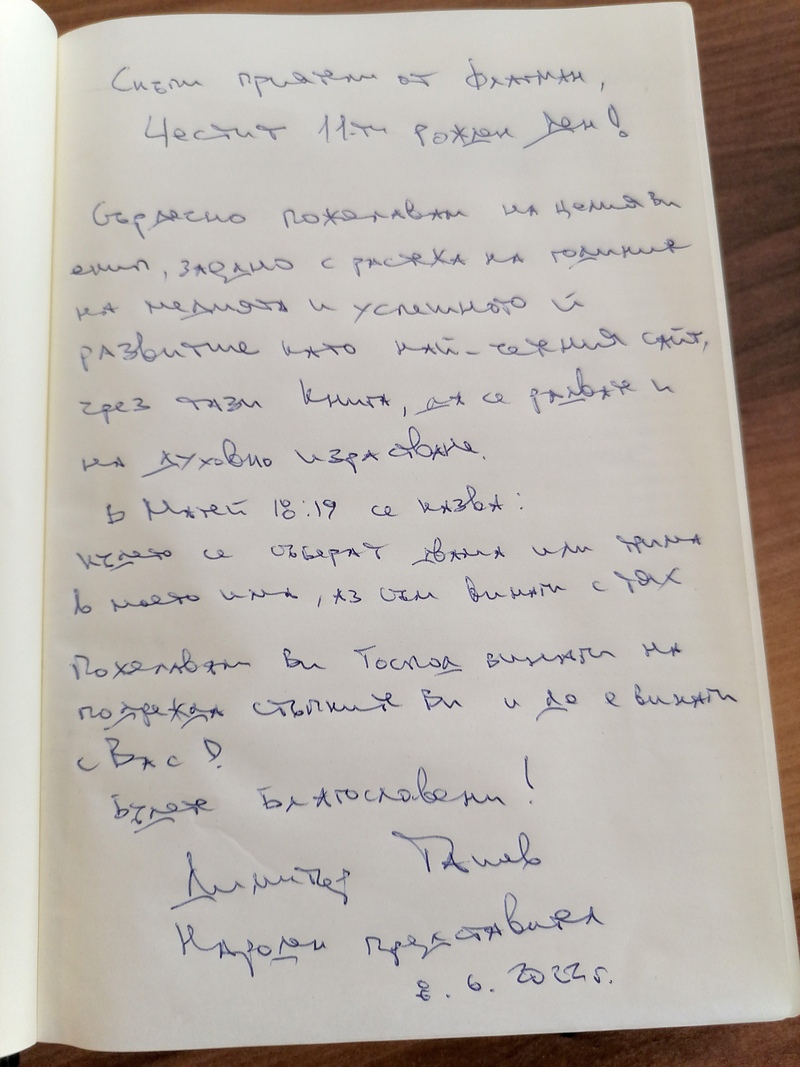 Скъпи приятели от Флагман,
Честит 11-ти рожден ден!
Сърдечно пожелавам на целия Ви
екип, заедно с растежа на годините
на медията и успешното й
развитие като най-четения сайт,
чрез тази Книга, да се радвате и
на духовно израстване.
В Матей 18:19 се казва:
където се съберат двама или трима
в моето име, аз съм винаги с тях
Пожелавам Ви Господ винаги на
подрежда стъпките Ви и да е винаги
с Вас!
Бъдете Благословени!
Димитър
Народен представител
8.6.2022г.